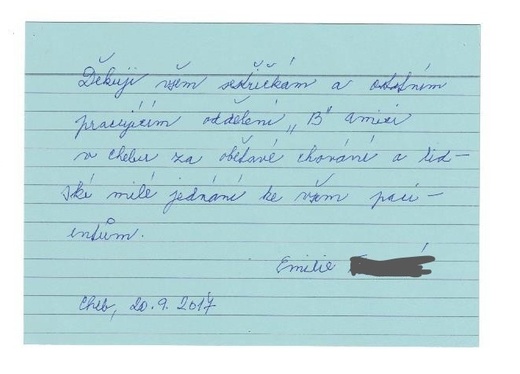 Děkuji všem sestřičkám a ostatním
pracujícím oddělení „B“
v Chebu za obětavé chování a lid-
ské milé jednání ke všem paci-
entům.
Emilie
Cheb, 20.9.2017